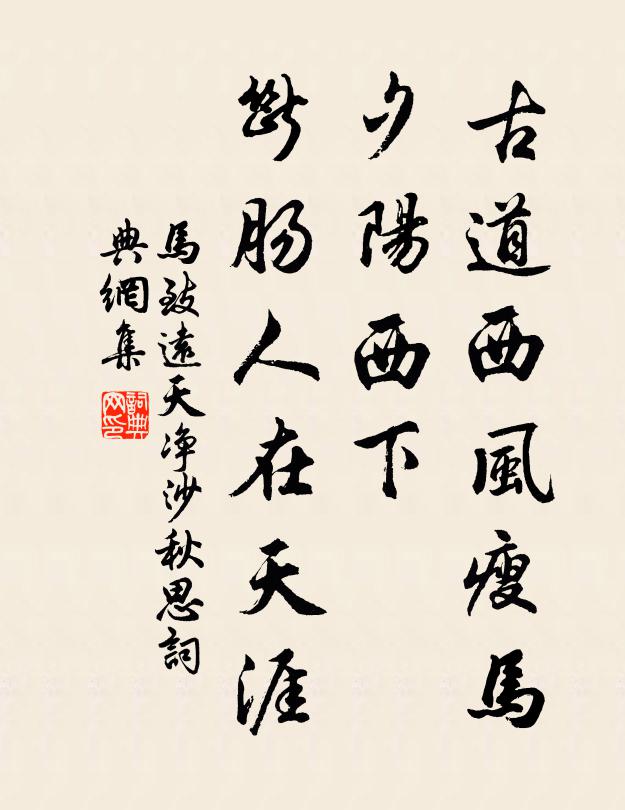 古道西風瘦馬
夕陽西下
斷肠人在天涯
馬致遠天净沙秋思詞
典網集
詞典网印